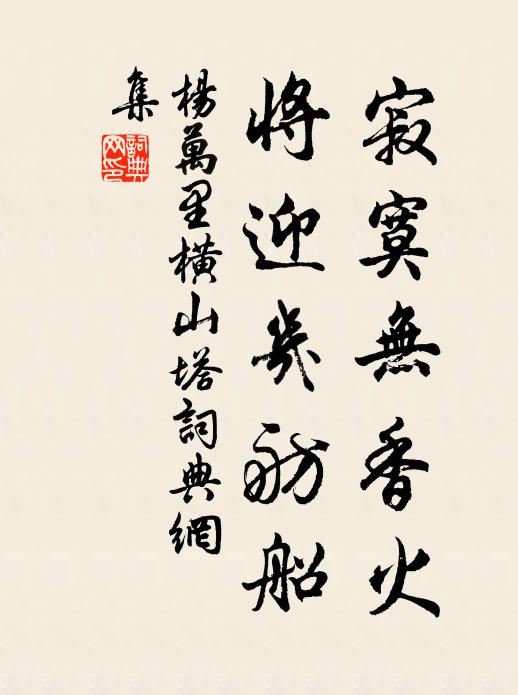 寂寞無香火
將迎幾舫船
楊萬里橫山塔詞典網
集
詞典
网印